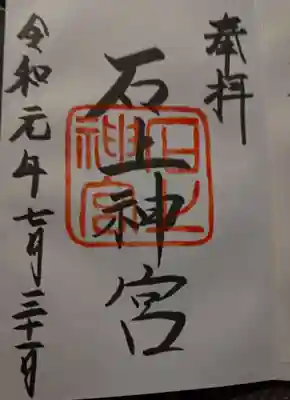 奉拝
石上神宮
石上神宮
令和元年七月三十一日